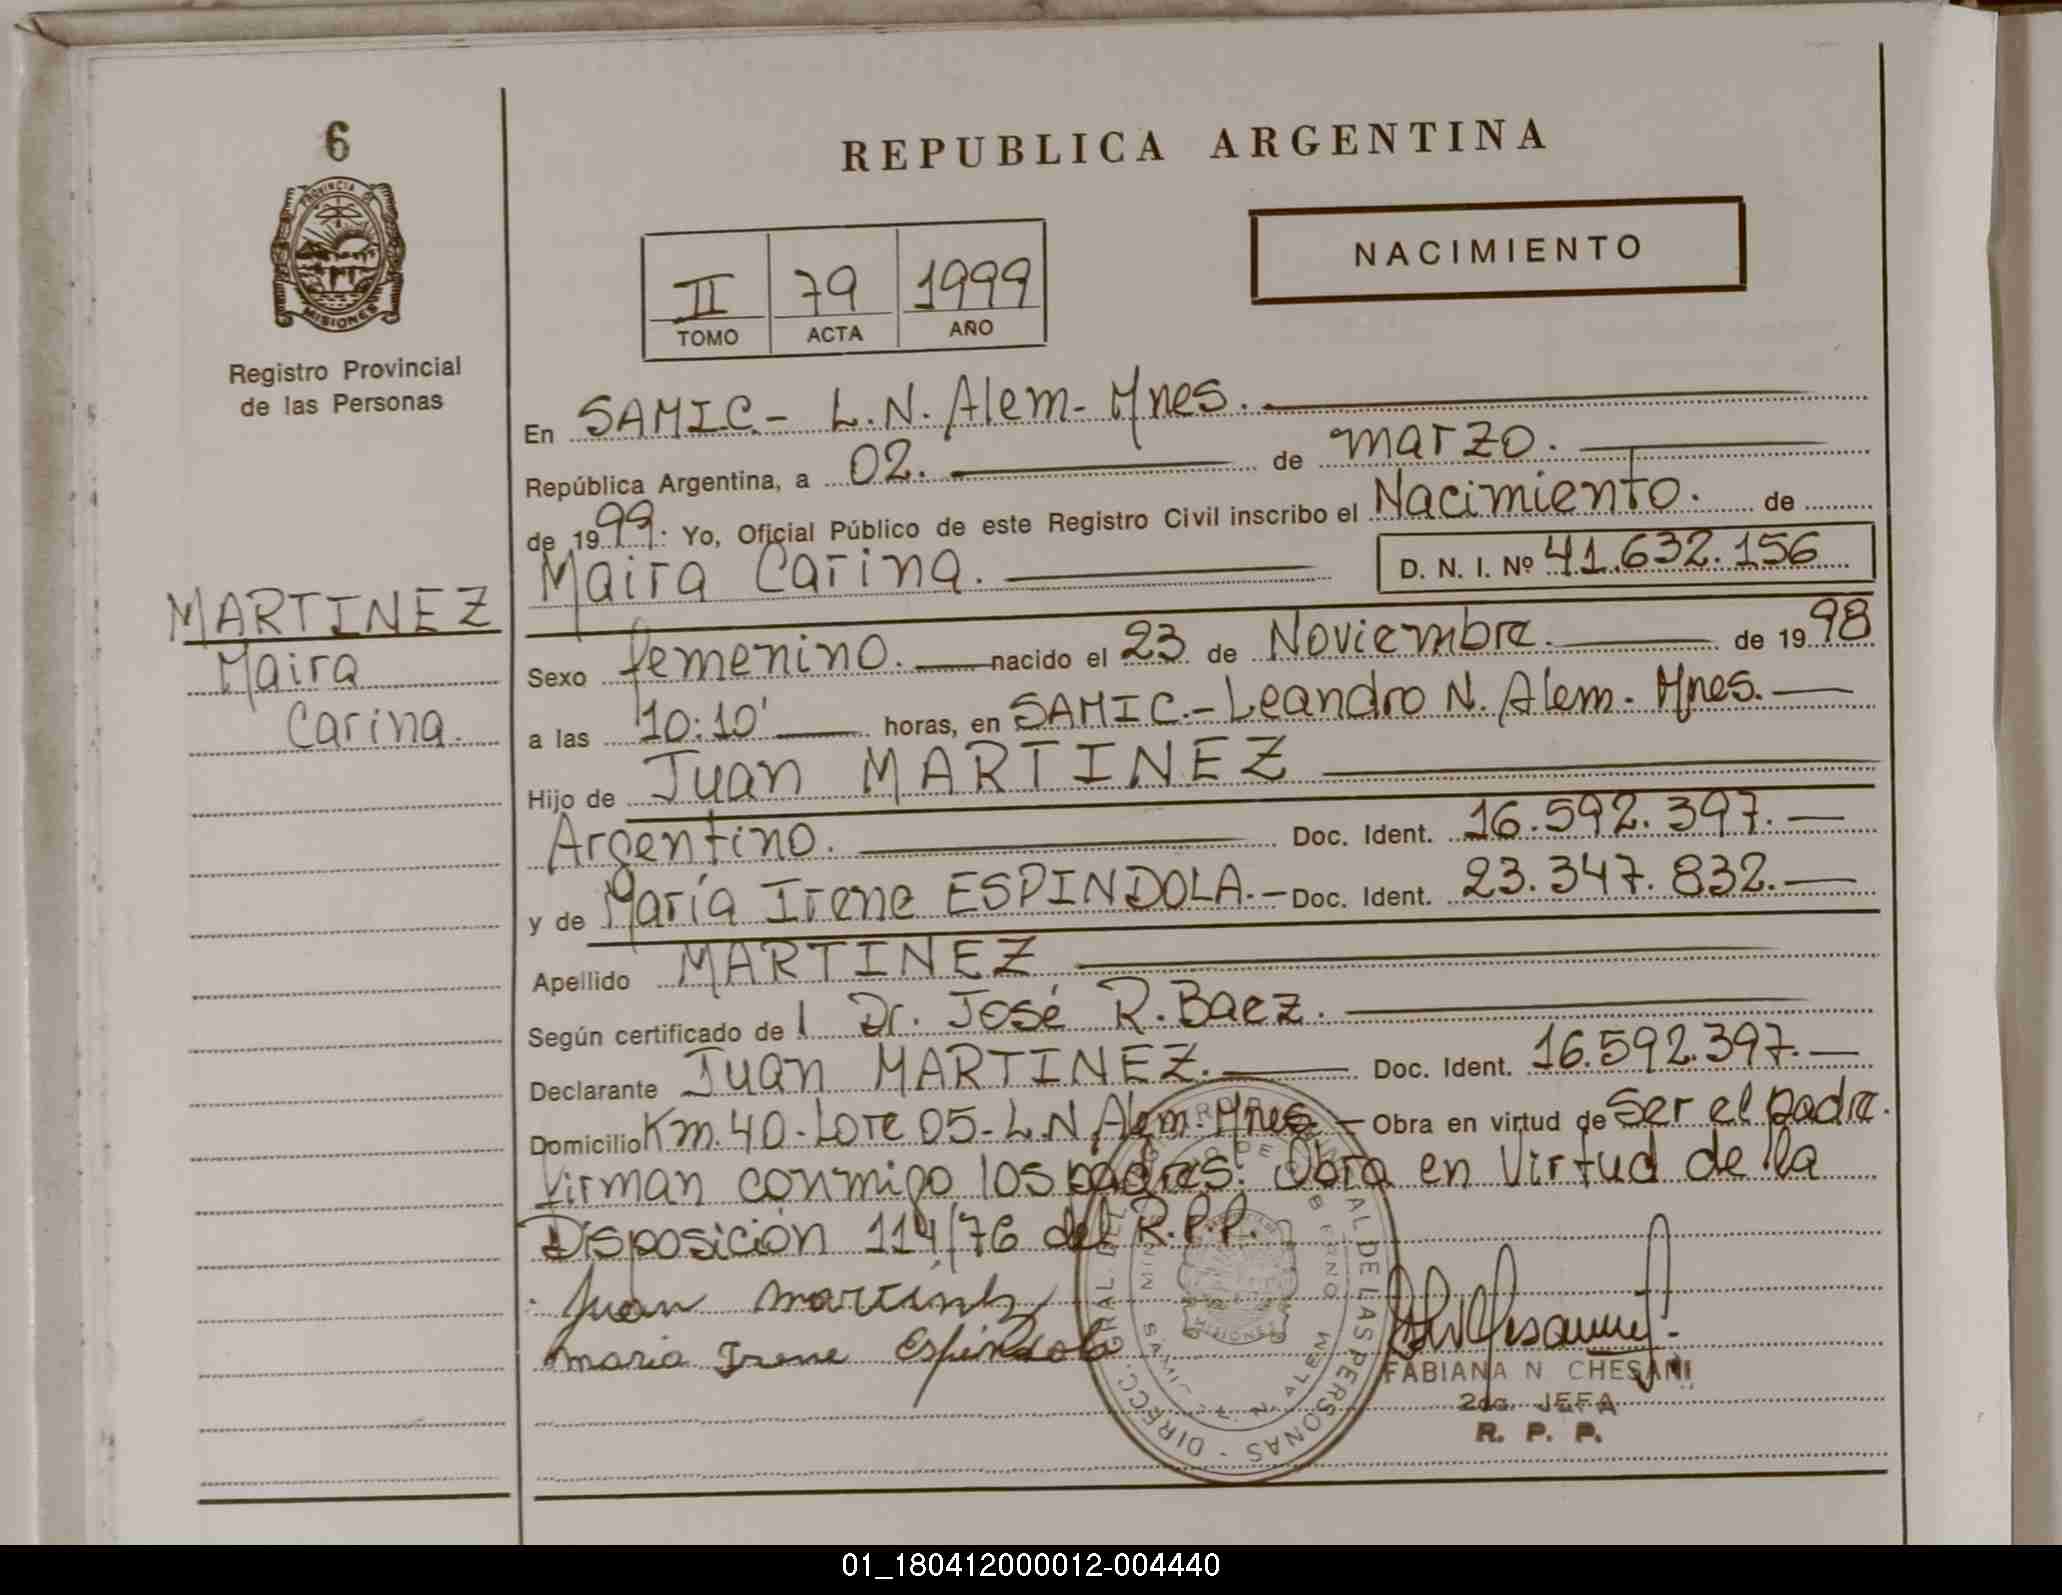 6
PROVINCIA DE
MISIONES
Registro Provincial
de las Personas
MARTINEZ
Maira
Carina.
REPUBLICA ARGENTINA
NACIMIENTO
II 79 1999
TOMO ACTA AÑO
En SAMIC.- L.N. Alem- Mnes.
República Argentina, a 02. de marzo.
de 1999. Yo, Oficial Público de este Registro Civil inscribo el Nacimiento. de
Maira Carina. D. N. I. Nº 41.632.156
Sexo femenino. nacido el 23 de Noviembre. de 1998
a las 10:10' horas, en SAMIC.- Leandro N. Alem. Mnes.
Hijo de Juan MARTINEZ
Argentino. Doc. Ident. 16.592.397.
y de María Irene ESPINDOLA.- Doc. Ident. 23.347.832.
Apellido MARTINEZ
Según certificado de l Dr. José R. Baez.
Declarante Juan MARTINEZ. Doc. Ident. 16.592.397.
Domicilio Km.40-Lote 05-L.N.Alem-Mnes Obra en virtud de Ser el padre.
Firman conmigo los padres. Obra en Virtud de la
Disposición 114/76 del R.P.P.
Juan martinez
maria Irene Espindola
FABIANA N CHESANI
2da. JEFA
R. P. P.
MISIONES
01_180412000012-004440